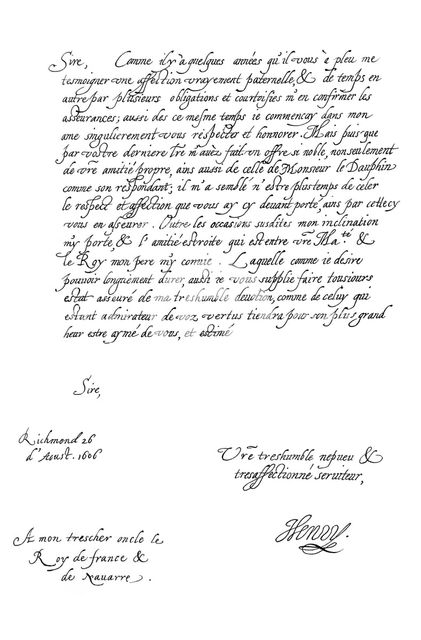 Sire, Comme il y'a quelques années qu'il vous à pleu me
tesmoigner une affection vrayement paternelle, & de temps en
autre par plusieurs obligations et courtoisies m'en confirmer les
asseurances; aussi des ce mesme temps ie commencay dans mon
ame singulierement vous respecter et honnorer. Mais puis que
par vostre derniere l̃re m'avèz fait un offre si noble, non seulement
de vr̃e amitié propre, ains aussi de celle de Monsieur le Dauphin
comme son respondant; il m'a semblé n'estre plus temps de celer
le respect et affection que vous ay cy devant porté, ains par cettecy
vous en asseurer. Outre les occasions susdites mon inclination
m'y porte, & l'amitié estroite qui est entre vr̃e Ma.té &
le Roy mon pere m'y convie. Laquelle comme ie desire
pouvoir longuement durer, aussi ie vous supplie faire tousiours
estat asseuré de ma treshumble devotion, comme de celuy qui
estant admirateur de voz vertus tiendra pour son plus grand
heur estre aymé de vous, et estimé
Sire,
Richmond 26
d'Aoust. 1606
Vr̃e treshumble nepueu &
tresaffectionné seruiteur,
Henry.
A mon trescher oncle le
Roy de france &
de Nauarre.